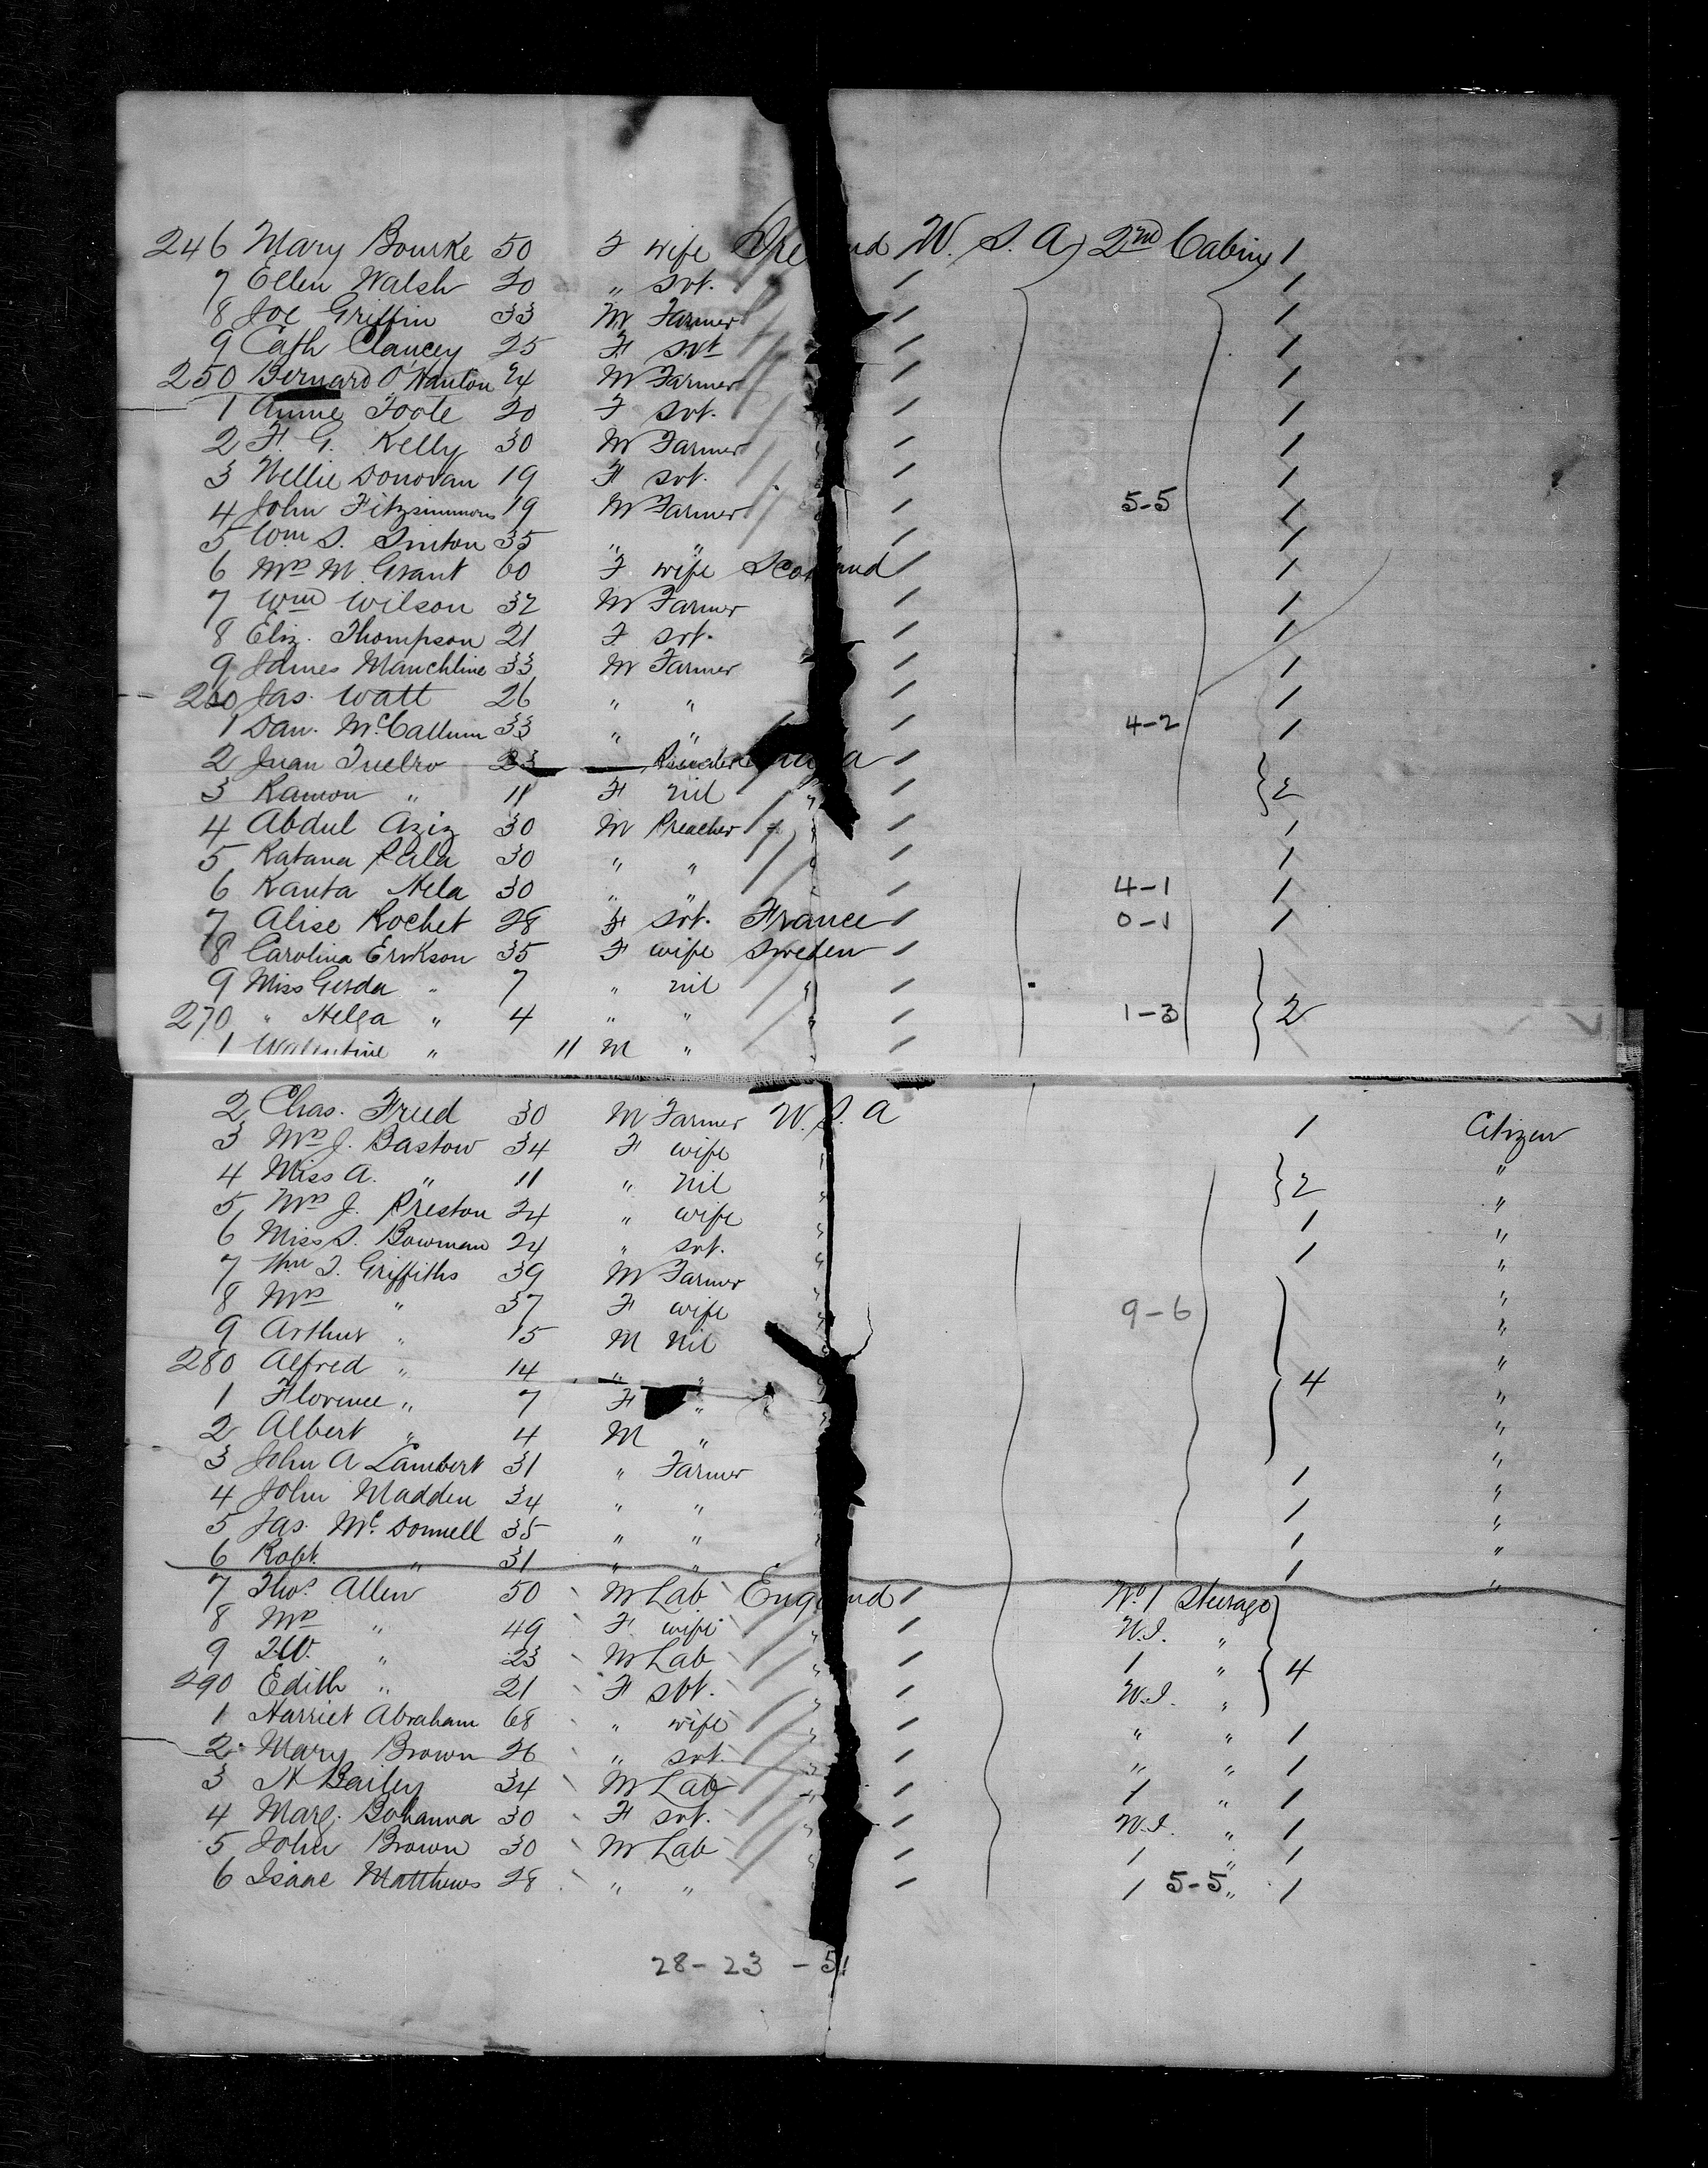 246 Mary Bourke 50 F wife Ire nd U. S. A 2nd Cabin 1
7 Ellen Walsh 20 " svt. / 1
8 Joe Griffin 33 M Farmer / 1
9 Cath Clancey 25 F svt / 1
250 Bernard O'Hanlon 24 M Farmer / 1
1 Annie Toole 20 F svt. / 1
2 F. G. Kelly 30 M Farmer / 1
3 Nellie Donovan 19 F svt. / 1
4 John Fitzsimmons 19 M Farmer / 5-5 1
5 Wm S. Sinton 35 " " / 1
6 Mrs M Grant 60 F wife Sco and / 1
7 Wm Wilson 32 M Farmer / 1
8 Eliz. Thompson 21 F svt. / 1
9 James Mauchline 33 M Farmer / 1
260 Jas. Watt 26 " " / 1
1 Dan. McCallum 33 " " / 4-2 1
2 Juan 23 a /
3 Ramon " 11 F nil " / 2
4 Abdul Aziz 30 M Preacher / 1
5 Ratana Pala 30 " " / 1
6 Kanta Hela 30 " " / 4-1 1
7 Alise Rochet 28 F svt. France / 0-1 1
8 Carolina Erikson 35 F wife Sweden /
9 Miss Gerda " 7 " nil " /
270 " Helga " 4 " " " / 1-3 2
1 Walentine " 11 M " /
2 Chas. Freed 30 M Farmer U. S. A 1 Citizen
3 Mrs J. Bastow 34 F wife " "
4 Miss A. " 11 " nil " 2 "
5 Mrs J. Preston 24 " wife " 1 "
6 Miss S. Bowman 24 " svt. " 1 "
7 Wm T. Griffiths 39 M Farmer " "
8 Mrs " 37 F wife " 9-6 "
9 Arthur " 15 M nil " "
280 Alfred " 14 " " " 4 "
1 Florence " 7 F " " "
2 Albert " 4 M " " "
3 John A Lambert 31 " Farmer 1 "
4 John Madden 34 " " 1 "
5 Jas. McDonnell 35 " " 1 "
6 Robt. " 31 " " 1 "
7 Thos. Allen 50 M Lab Eng nd / No 1 Steerage
8 Mrs " 49 F wife " / W.I. "
9 T.W. " 23 M Lab " / 1 " 4
290 Edith " 21 F svt. " / W.I. "
1 Harriet Abraham 68 " wife " / " " 1
2 Mary Brown 26 " svt. " / " " 1
3 H Bailey 34 M Lab " / 1 " 1
4 Marg. Bohanna 30 F svt. " / W.I. " 1
5 John Brown 30 M Lab " / 1 " 1
6 Isaac Matthews 28 " " / 1 5-5 " 1
28-23 -51